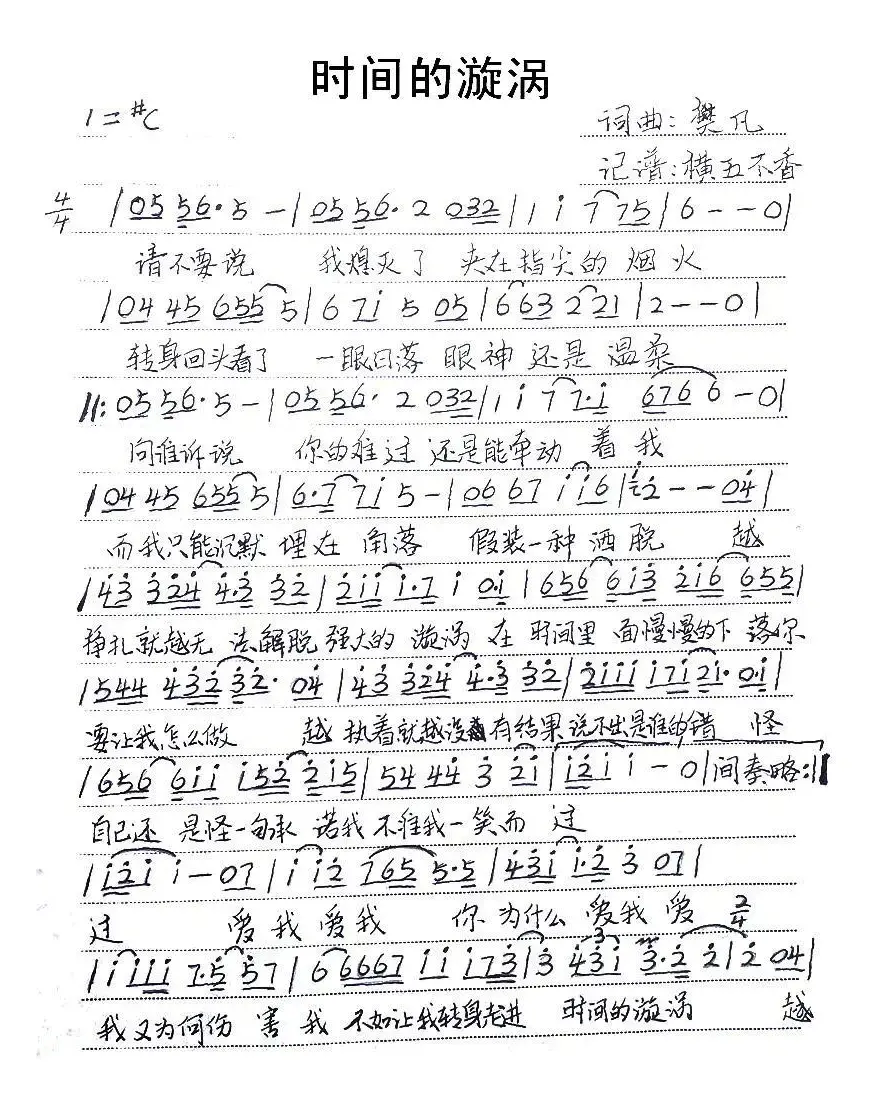 时间的漩涡
1=#C 词曲:樊凡
记谱:横五不香
4/4 |05 56·5 -|05 56· 2 032|1 i 7 75|6--0|
请不要说 我熄灭了 夹在指尖的烟火
|04 45 655 5|6 7i 5 05|663 221|2--0|
转身回头看了 一眼日落 眼神 还是 温柔
‖:05 56·5 -|05 56· 2 032|1 i 7 7·i 676 6 -0|
问谁诉说 你的难过 还是能牵动 着我
|04 45 655 5|6·7 7i 5 -|06 67 i i6|i2--04|
而我只能沉默 埋在 角落 假装一种 洒脱 越
|43 324 4·3 32|2ii i·7 i 0·i|656 6i3 2i6 655|
挣扎就越无 法解脱 强大的 漩涡 在 时间里 面慢慢的下 落你
|544 432 32· 04|43 324 4·3 32|2iii i7i 2i· 0·i|
要让我怎么做 越 执着就越没有结果 说不出是谁的错 怪
|656 6ii i522 2i5|54 44 3 2i|i2i i - 0|间奏略:‖
自己还 是怪一句承 诺我 不难我一笑而 过
|i2i i-07|i i2 765 5·5|43i i·2 3 07|
过 爱我爱我 你为什么 爱我爱 2/4
|i iii 7·5 57|6 6667 ii i73|3 43i 3·2 2i|2 04|
我又为何伤 害我 不如让我转身走进 时间的漩涡 越